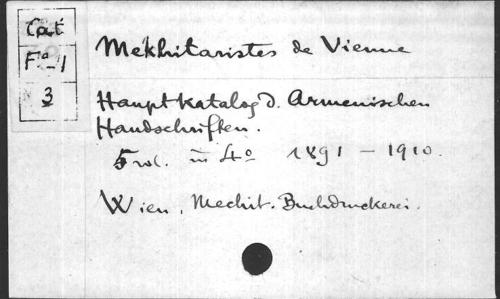 Cat
Fᵒ-1
3
Mekhitaristes de Vienne
Hauptkatalog d. Armenischen
Handschriften.
5 vol. in 4º 1891 - 1910.
Wien, Mechit. Buchdruckerei.